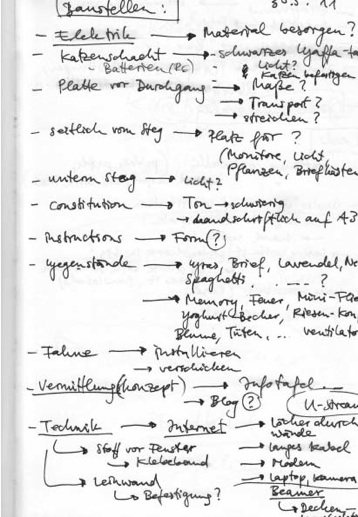 Baustellen: 30.3. 11
- Elektrik → Material besorgen?
- Katzenschacht → - schwarzes Gaffa-ta
- Batterien (RC) Licht?
Katzen befestigen
- Platte vor Durchgang → Maße?
→ Transport?
→ streichen?
- seitlich vom Steg → Platz für ?
(Monitore, Licht,
Pflanzen, Briefkästen
- unterm Steg → Licht?
- constitution → Ton → schwierig
→ handschriftlich auf A3
- instructions → Form (?)
- gegenstände → Brief, Lavendel, Ne
Spaghetti. - - - - ?
→ Memory, Feuer, Mini-Flie
Yoghurt-Becher, Riesen-Kon
Blume, Tüten, ... ventilator
- Fahne → installieren
→ verschicken
- Vermittlung (konzept) → Infotafel
→ Blog (?) U-stream
- Technik → Internet → Löcher durch
wände
→ Stoff vor Fenster → langes Kabel
→ Klebeband → Modem
→ Leinwand → laptop, kamera
→ Befestigung? Beamer
→ Decken-